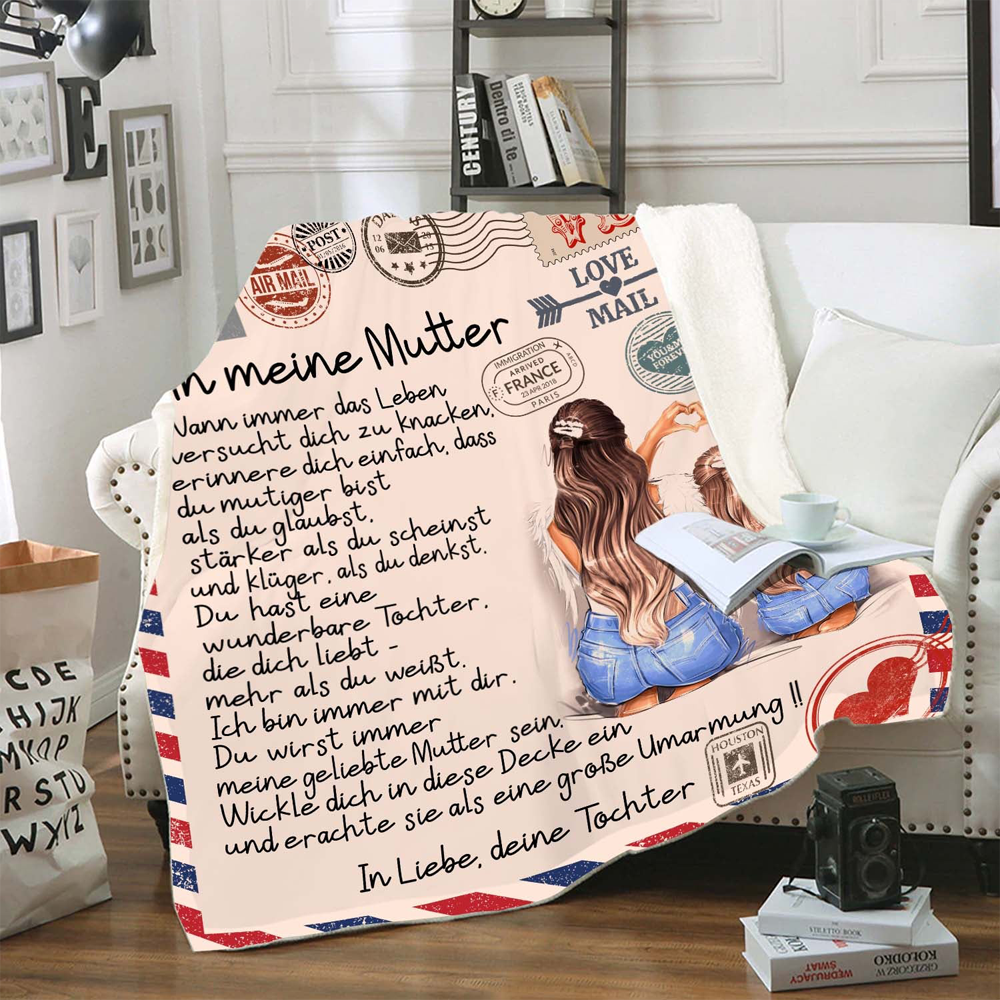 CENTURY
Dentro di te
DESIGN HOTELS
YEAR BOOK 15
POST
AIR MAIL
12
06
20
15
LOVE
MAIL
IMMIGRATION
ARRIVED
FRANCE
23 APR 2018
PARIS
YOU & M
FOREV
n meine Mutter
Wann immer das Leben
versucht dich zu knacken,
erinnere dich einfach, dass
du mutiger bist
als du glaubst,
stärker als du scheinst
und klüger, als du denkst.
Du hast eine
wunderbare Tochter,
die dich liebt -
mehr als du weißt.
Ich bin immer mit dir.
Du wirst immer
meine geliebte Mutter sein.
Wickle dich in diese Decke ein
und erachte sie als eine große Umarmung !!
In Liebe, deine Tochter
HOUSTON
TEXAS
CDE
HIJK
MNOP
RSTU
WXYZ
ROLLEIFLEX
STILETTO BOOK
GRZEGORZ W
KOŁODKO
WĘDRUJĄCY
ŚWIAT